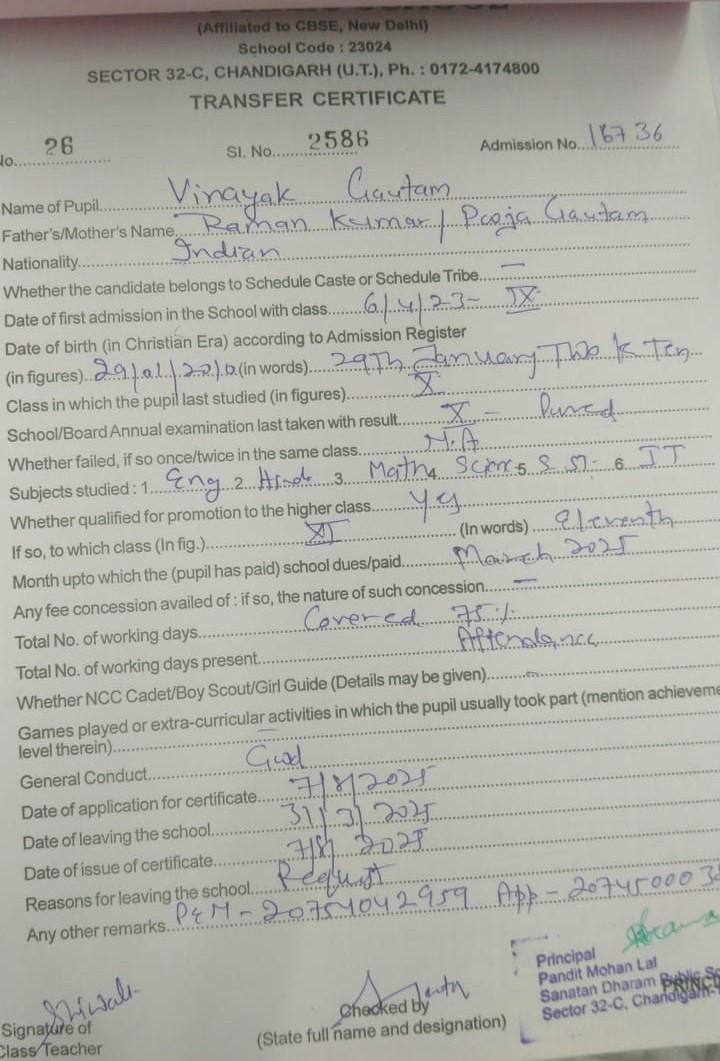 (Affiliated to CBSE, New Delhi)
School Code : 23024
SECTOR 32-C, CHANDIGARH (U.T.), Ph. : 0172-4174800
TRANSFER CERTIFICATE
No. 26 Sl. No. 2586 Admission No. 16736
Name of Pupil Vinayak Gautam
Father's/Mother's Name Raman Kumar / Pooja Gautam
Nationality Indian
Whether the candidate belongs to Schedule Caste or Schedule Tribe —
Date of first admission in the School with class 6/4/23- IX
Date of birth (in Christian Era) according to Admission Register
(in figures) 29/01/2010 (in words) 29Th January Two K Ten
Class in which the pupil last studied (in figures) X
School/Board Annual examination last taken with result X -
Whether failed, if so once/twice in the same class N.A
Subjects studied : 1 Eng 2 3 Math 4 5 S St. 6 IT
Whether qualified for promotion to the higher class Yes
If so, to which class (In fig.) XI (In words) Eleventh
Month upto which the (pupil has paid) school dues/paid March 2025
Any fee concession availed of : if so, the nature of such concession —
Total No. of working days Covered 75 %
Total No. of working days present Attendance
Whether NCC Cadet/Boy Scout/Girl Guide (Details may be given) —
Games played or extra-curricular activities in which the pupil usually took part (mention achieveme
level therein) —
General Conduct Good
Date of application for certificate 7/8/2025
Date of leaving the school 31/3/2025
Date of issue of certificate 7/8/2025
Reasons for leaving the school Request
Any other remarks PEM - 20754042959 App - 207450003
Signature of
Class Teacher
Checked by
(State full name and designation)
Principal
Pandit Mohan Lal
Sanatan Dharam Public Sc
Sector 32-C, Chandigarh-
PRINC